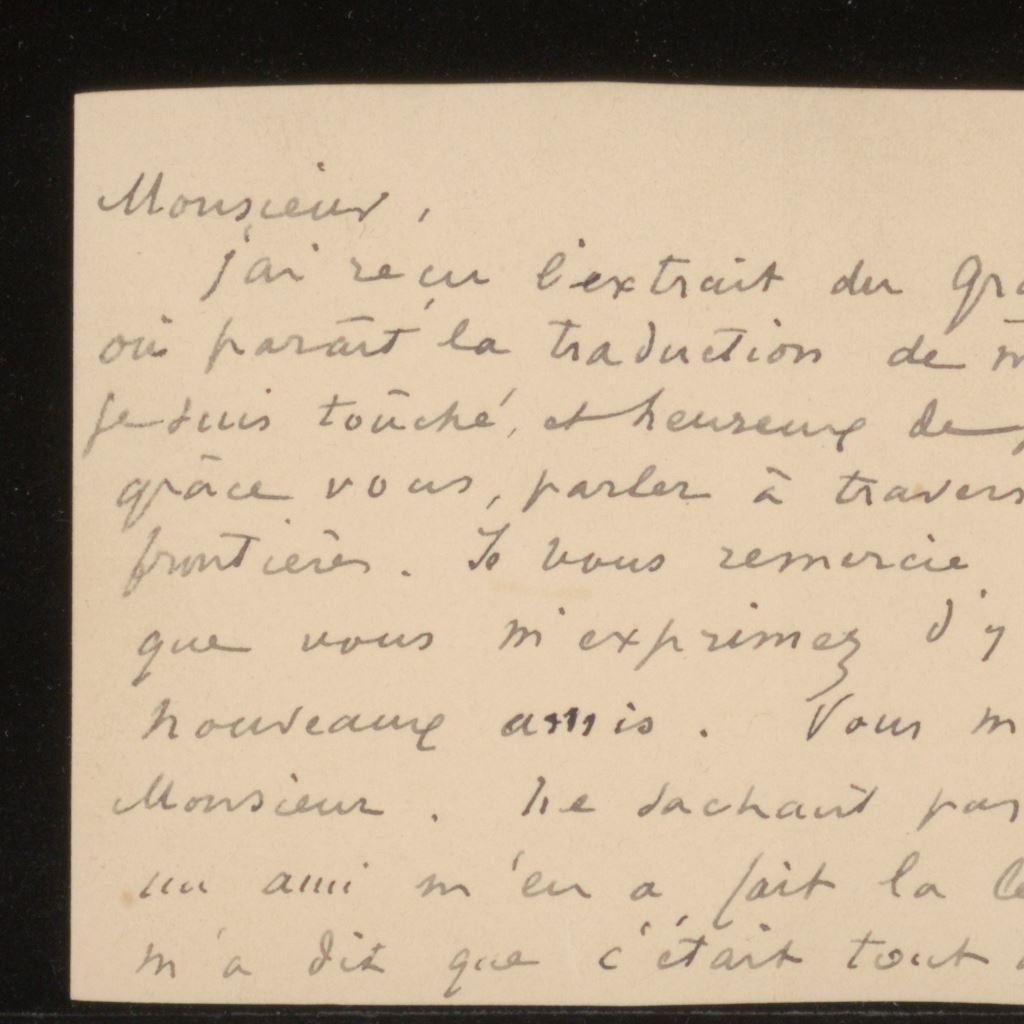 Monsieur,
j'ai reçu l'extrait du Gra
où paraît la traduction de m
je suis touché, et heureux de
grâce vous, parler à travers
frontières. Je vous remercie
que vous m'exprimez d'y
nouveaux amis. Vous m
Monsieur. Ne sachant pas
un ami m'en a fait la le
m'a dit que c'était tout a